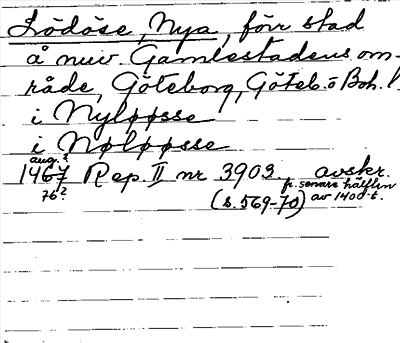 Lödöse, Nya, förr stad
å nuv. Gamlestadens om-
råde, Göteborg, Göteb. o Boh. l.
i Nyløpøsse
i Nøløpøsse
aug.?
1467 Rep. II nr 3903 avskr.
76? (s. 569-70) fr. senare hälften
av 1400-t.